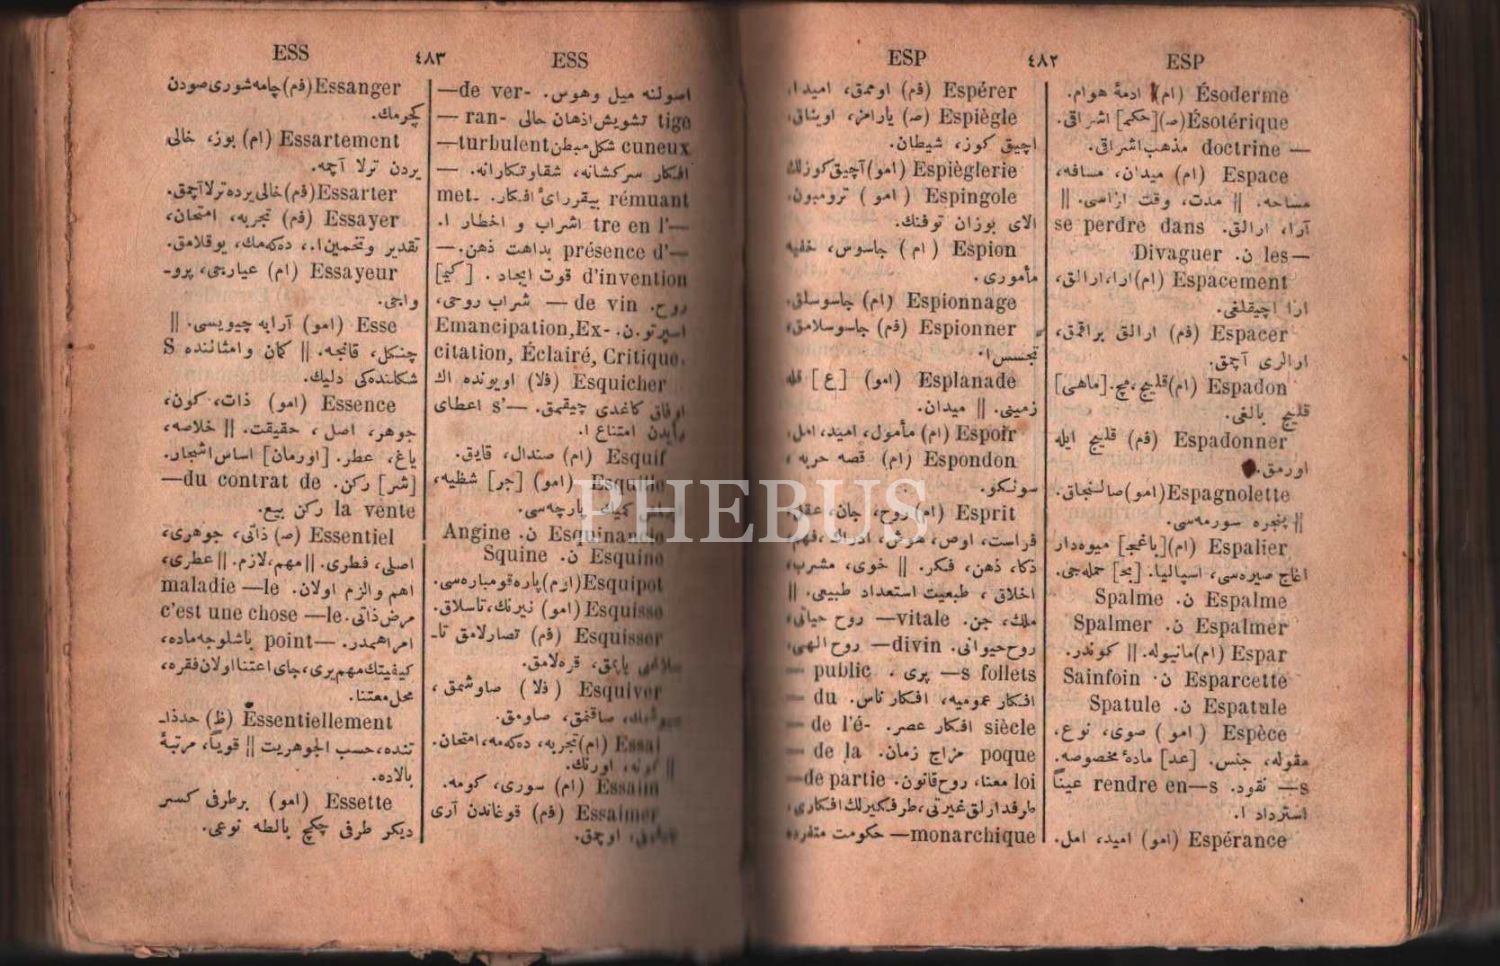 ESP
٤٨٢
ESP
Ésoderme (ام) ادمهٔ هوام.
Ésotérique (ص) [حكم] اشراقی.
— doctrine مذهب اشراقی.
Espace (ام) میدان، مسافه،
مساحه. || مدت، وقت آراسی. ||
se perdre dans آرا، ارالق.
Divaguer ن. les—
Espacement (ام) ارا، ارالق،
ارا آچیقلغی.
Espacer (فم) ارالق براقمق،
ارالری آچمق.
Espadon (ام) قلیج، مچ. [ماهی]
قلیج بالغی.
Espadonner (فم) قلیج ایله
اورمق.
Espagnolette (امو)
|| پنجره سورمه‌سی.
Espalier (ام) [باغج] میوه‌دار
اغاج صیره‌سی، اسپالیا. [بح]
Espalme ن. Spalme
Espalmer ن. Spalmer
Espar (ام) مانیوله. || كوندر.
Esparcette ن. Sainfoin
Espatule ن. Spatule
Espèce (امو) صوی، نوع،
مقوله، جنس. [عد] مادهٔ مخصوصه.
—s نقود. rendre en—s عیناً
استرداد ا.
Espérance (امو) امید، امل.
Espérer (فم) اوممق، امیدا.
Espiègle (ص) یارامز، اویناق،
آچیق كوز، شیطان.
Espièglerie (امو) آچیق كوزلك
Espingole (امو) ترومبون.
الای بوزان توفنك.
Espion (ام) جاسوس، خفیه
مأموری.
Espionnage (ام) جاسوسلق.
Espionner (فم) جاسوسلامق،
تجسس ا.
Esplanade (امو) [ع] قله
زمینی. || میدان.
Espoir (ام) مأمول، امید، امل.
Espondon (ام) قصه حربه،
سونكو.
Esprit (ام) روح، جان، عقل
فراست، اوص، هوش، ادراك، فهم
ذكا، ذهن، فكر. || خوی، مشرب،
اخلاق، طبیعت استعداد طبیعی. ||
ملك، جن. —vitale روح حیاتی،
روح حیوانی. —divin روح الهی،
— public پری. —s follets
— du افكار عمومیه، افكار ناس.
— de l'é- افكار عصر. siècle
— de la مزاج زمان. poque
—de partie معنا، روح قانون. loi
طرفدارلق غیرتی، طرفكیرلك افكاری،
—monarchique حكومت منفرده
ESS
٤٨٣
ESS
—de ver- اصولنه میل وهوس.
— ran- تشویش اذهان حالی tige
—turbulent شكل مبطن cuneux
افكار سركشانه، شقاوتكارانه. —
met- بیقرارئ افكار. rémuant
اشراب و اخطار ا. tre en l'—
بداهت ذهن. —présence d'
[كیم] قوت ایجاد. d'invention
روح. —de vin شراب روحی،
Emancipation, Ex- اسپرتو. ن.
citation, Éclairé, Critique.
Esquicher (فلا) اویونده اك
اوفاق كاغدی چیقمق. —s' اعطای
رأیدن امتناع ا.
Esquif (ام) صندال، قایق.
Esquille (امو) [جر] شظیه،
كمیك پارچه‌سی.
Esquinancie ن. Angine
Esquine ن. Squine
Esquipot (ام) پاره قومباره‌سی.
Esquisse (امو) نیرنك، تاسلاق.
Esquisser (فم) تصارلامق تا-
سلاغی یاپمق، قره‌لامق.
Esquiver (فلا) صاوشمق،
صاقنمق، صاومق.
Essai (ام) تجربه، دكمه، امتحان.
|| نمونه، اورنك.
Essaim (ام) سوری، كومه.
Essaimer (فم) قوغاندن آری
اوچمق.
Essanger (فم) چامه‌شوری صودن
كچرمك.
Essartement (ام) بوز، خالی
یردن ترلا آچمه.
Essarter (فم) خالی یرده ترلا آچمق.
Essayer (فم) تجربه، امتحان،
تقدیر وتخمین ا.، دكه‌مك، یوقلامق.
Essayeur (ام) عیارجی، پرو-
واجی.
Esse (امو) آرابه چیویسی. ||
چنكل، قانجه. || كمان وامثالنده S
شكلنده‌كی دلیك.
Essence (امو) ذات، كون،
جوهر، اصل، حقیقت. || خلاصه،
یاغ، عطر. [اورمان] اساس اشجار.
—du contrat de [شر] ركن.
la vente ركن بیع.
Essentiel (ص) ذاتی، جوهری،
اصلی، فطری. || مهم، لازم. || عطری،
maladie —le اهم والزم اولان.
c'est une chose —le مرض ذاتی.
امر اهمدر. —point باشلوجه ماده،
كیفیتك مهم یری، جای اعتنا اولان فقره،
محل معتنا.
Essentiellement (ظ) حدذا-
تنده، حسب الجوهریت || قویاً، مرتبهٔ
بالاده.
Essette (امو) برطرفی كسر
دیكر طرفی چكیچ بالطه نوعی.
PHEBUS